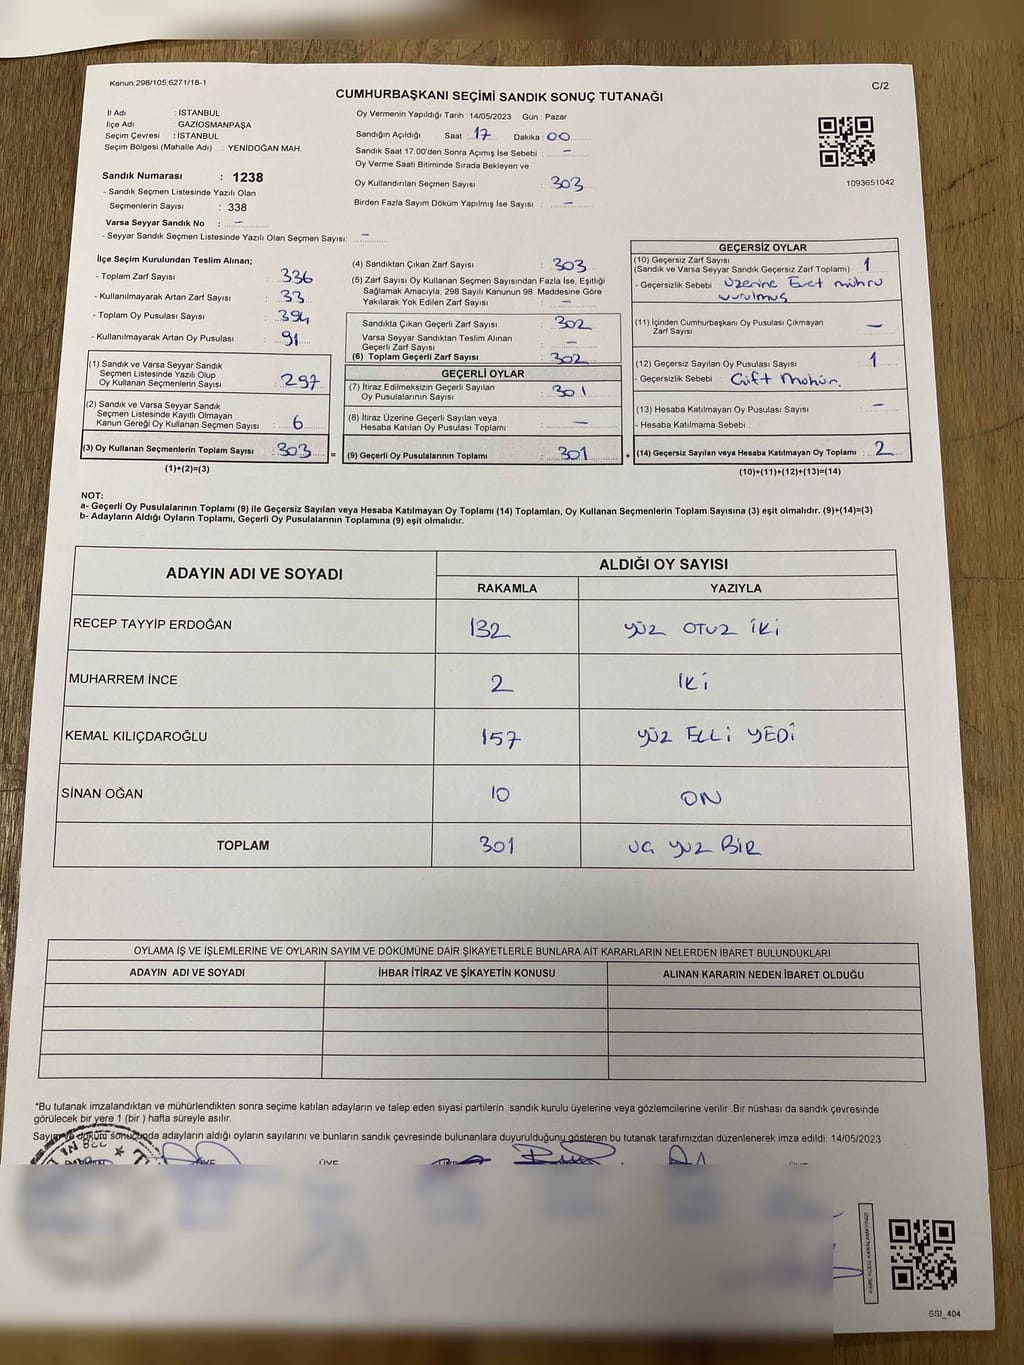 Kanun;298/105,6271/18-1
C/2
CUMHURBAŞKANI SEÇİMİ SANDIK SONUÇ TUTANAĞI
İl Adı : İSTANBUL
İlçe Adı : GAZİOSMANPAŞA
Seçim Çevresi : İSTANBUL
Seçim Bölgesi (Mahalle Adı) : YENİDOĞAN MAH.
Oy Vermenin Yapıldığı Tarih :14/05/2023 Gün : Pazar
Sandığın Açıldığı Saat : 17 Dakika : 00
Sandık Saat 17:00'den Sonra Açımış İse Sebebi : –
Oy Verme Saati Bitiminde Sırada Bekleyen ve
Oy Kullandırılan Seçmen Sayısı : 303
Birden Fazla Sayım Döküm Yapılmış İse Sayısı : –
1093651042
Sandık Numarası : 1238
- Sandık Seçmen Listesinde Yazılı Olan
Seçmenlerin Sayısı : 338
Varsa Seyyar Sandık No : –
- Seyyar Sandık Seçmen Listesinde Yazılı Olan Seçmen Sayısı: –
İlçe Seçim Kurulundan Teslim Alınan;
- Toplam Zarf Sayısı : 336
- Kullanılmayarak Artan Zarf Sayısı : 33
- Toplam Oy Pusulası Sayısı : 394
- Kullanılmayarak Artan Oy Pusulası : 91
(1) Sandık ve Varsa Seyyar Sandık
Seçmen Listesinde Yazılı Olup
Oy Kullanan Seçmenlerin Sayısı : 297
(2) Sandık ve Varsa Seyyar Sandık
Seçmen Listesinde Kayıtlı Olmayan
Kanun Gereği Oy Kullanan Seçmen Sayısı : 6
(3) Oy Kullanan Seçmenlerin Toplam Sayısı : 303 =
(1)+(2)=(3)
(4) Sandıktan Çıkan Zarf Sayısı : 303
(5) Zarf Sayısı Oy Kullanan Seçmen Sayısından Fazla İse, Eşitliği
Sağlamak Amacıyla, 298 Sayılı Kanunun 98 Maddesine Göre
Yakılarak Yok Edilen Zarf Sayısı : –
Sandıkta Çıkan Geçerli Zarf Sayısı : 302
Varsa Seyyar Sandıktan Teslim Alınan
Geçerli Zarf Sayısı : –
(6) Toplam Geçerli Zarf Sayısı : 302
GEÇERLİ OYLAR
(7) İtiraz Edilmeksizin Geçerli Sayılan
Oy Pusulalarının Sayısı : 301
(8) İtiraz Üzerine Geçerli Sayılan veya
Hesaba Katılan Oy Pusulası Toplamı : –
(9) Geçerli Oy Pusulalarının Toplamı : 301 +
GEÇERSİZ OYLAR
(10) Geçersiz Zarf Sayısı
(Sandık ve Varsa Seyyar Sandık Geçersiz Zarf Toplamı) : 1
- Geçersizlik Sebebi : Üzerine Evet mührü
vurulmuş
(11) İçinden Cumhurbaşkanı Oy Pusulası Çıkmayan
Zarf Sayısı : –
(12) Geçersiz Sayılan Oy Pusulası Sayısı : 1
- Geçersizlik Sebebi : Çift Mühür.
(13) Hesaba Katılmayan Oy Pusulası Sayısı : –
- Hesaba Katılmama Sebebi :
(14) Geçersiz Sayılan veya Hesaba Katılmayan Oy Toplamı : 2
(10)+(11)+(12)+(13)=(14)
NOT:
a- Geçerli Oy Pusulalarının Toplamı (9) ile Geçersiz Sayılan veya Hesaba Katılmayan Oy Toplamı (14) Toplamları, Oy Kullanan Seçmenlerin Toplam Sayısına (3) eşit olmalıdır. (9)+(14)=(3)
b- Adayların Aldığı Oyların Toplamı, Geçerli Oy Pusulalarının Toplamına (9) eşit olmalıdır.
ADAYIN ADI VE SOYADI
ALDIĞI OY SAYISI
RAKAMLA YAZIYLA
RECEP TAYYİP ERDOĞAN 132 yüz otuz iki
MUHARREM İNCE 2 iki
KEMAL KILIÇDAROĞLU 157 yüz ELLi YEDİ
SİNAN OĞAN 10 ON
TOPLAM 301 üç yüz BİR
OYLAMA İŞ VE İŞLEMLERİNE VE OYLARIN SAYIM VE DÖKÜMÜNE DAİR ŞİKAYETLERLE BUNLARA AİT KARARLARIN NELERDEN İBARET BULUNDUKLARI
ADAYIN ADI VE SOYADI İHBAR İTİRAZ VE ŞİKAYETİN KONUSU ALINAN KARARIN NEDEN İBARET OLDUĞU
*Bu tutanak imzalandıktan ve mühürlendikten sonra seçime katılan adayların ve talep eden siyasi partilerin sandık kurulu üyelerine veya gözlemcilerine verilir .Bir nüshası da sandık çevresinde
görülecek bir yere 1 (bir ) hafta süreyle asılır.
Sayım ve döküm sonucunda adayların aldığı oyların sayılarını ve bunların sandık çevresinde bulunanlara duyurulduğunu gösteren bu tutanak tarafımızdan düzenlenerek imza edildi. 14/05/2023
ÜYE ÜYE
KARE KODU KARALAMAYINIZ!
SSI_404